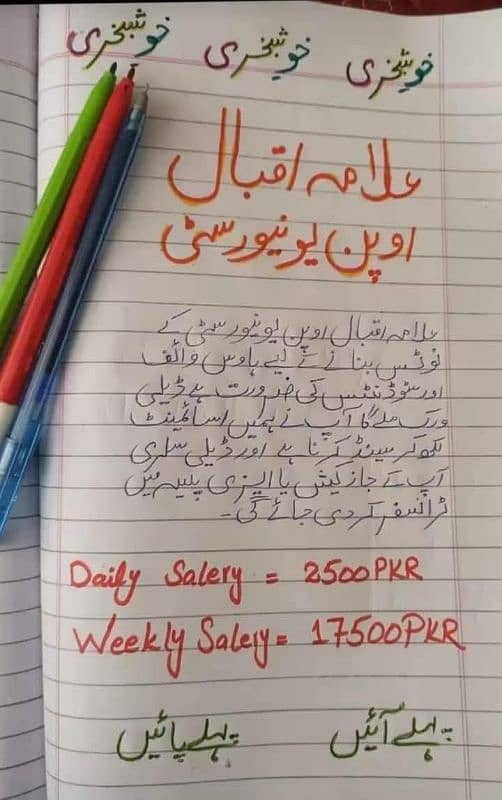 خوشخبری خوشخبری خوشخبری
علامہ اقبال
اوپن یونیورسٹی
علامہ اقبال اوپن یونیورسٹی کے
نوٹس بنانے کے لیے ہاوس وائف
اور سٹوڈنٹس کی ضرورت ہے ڈیلی
ورک ملے گا آپ نے ہمیں اسائمینٹ
لکھ کر سینڈ کرنا ہے اور ڈیلی سلری
آپ کے جاز کیش یا ایزی پیسہ میں
ٹرانسفر کر دی جائے گی۔
Daily Salery = 2500PKR
Weekly Salery = 17500PKR
پہلے آئیں پہلے پائیں